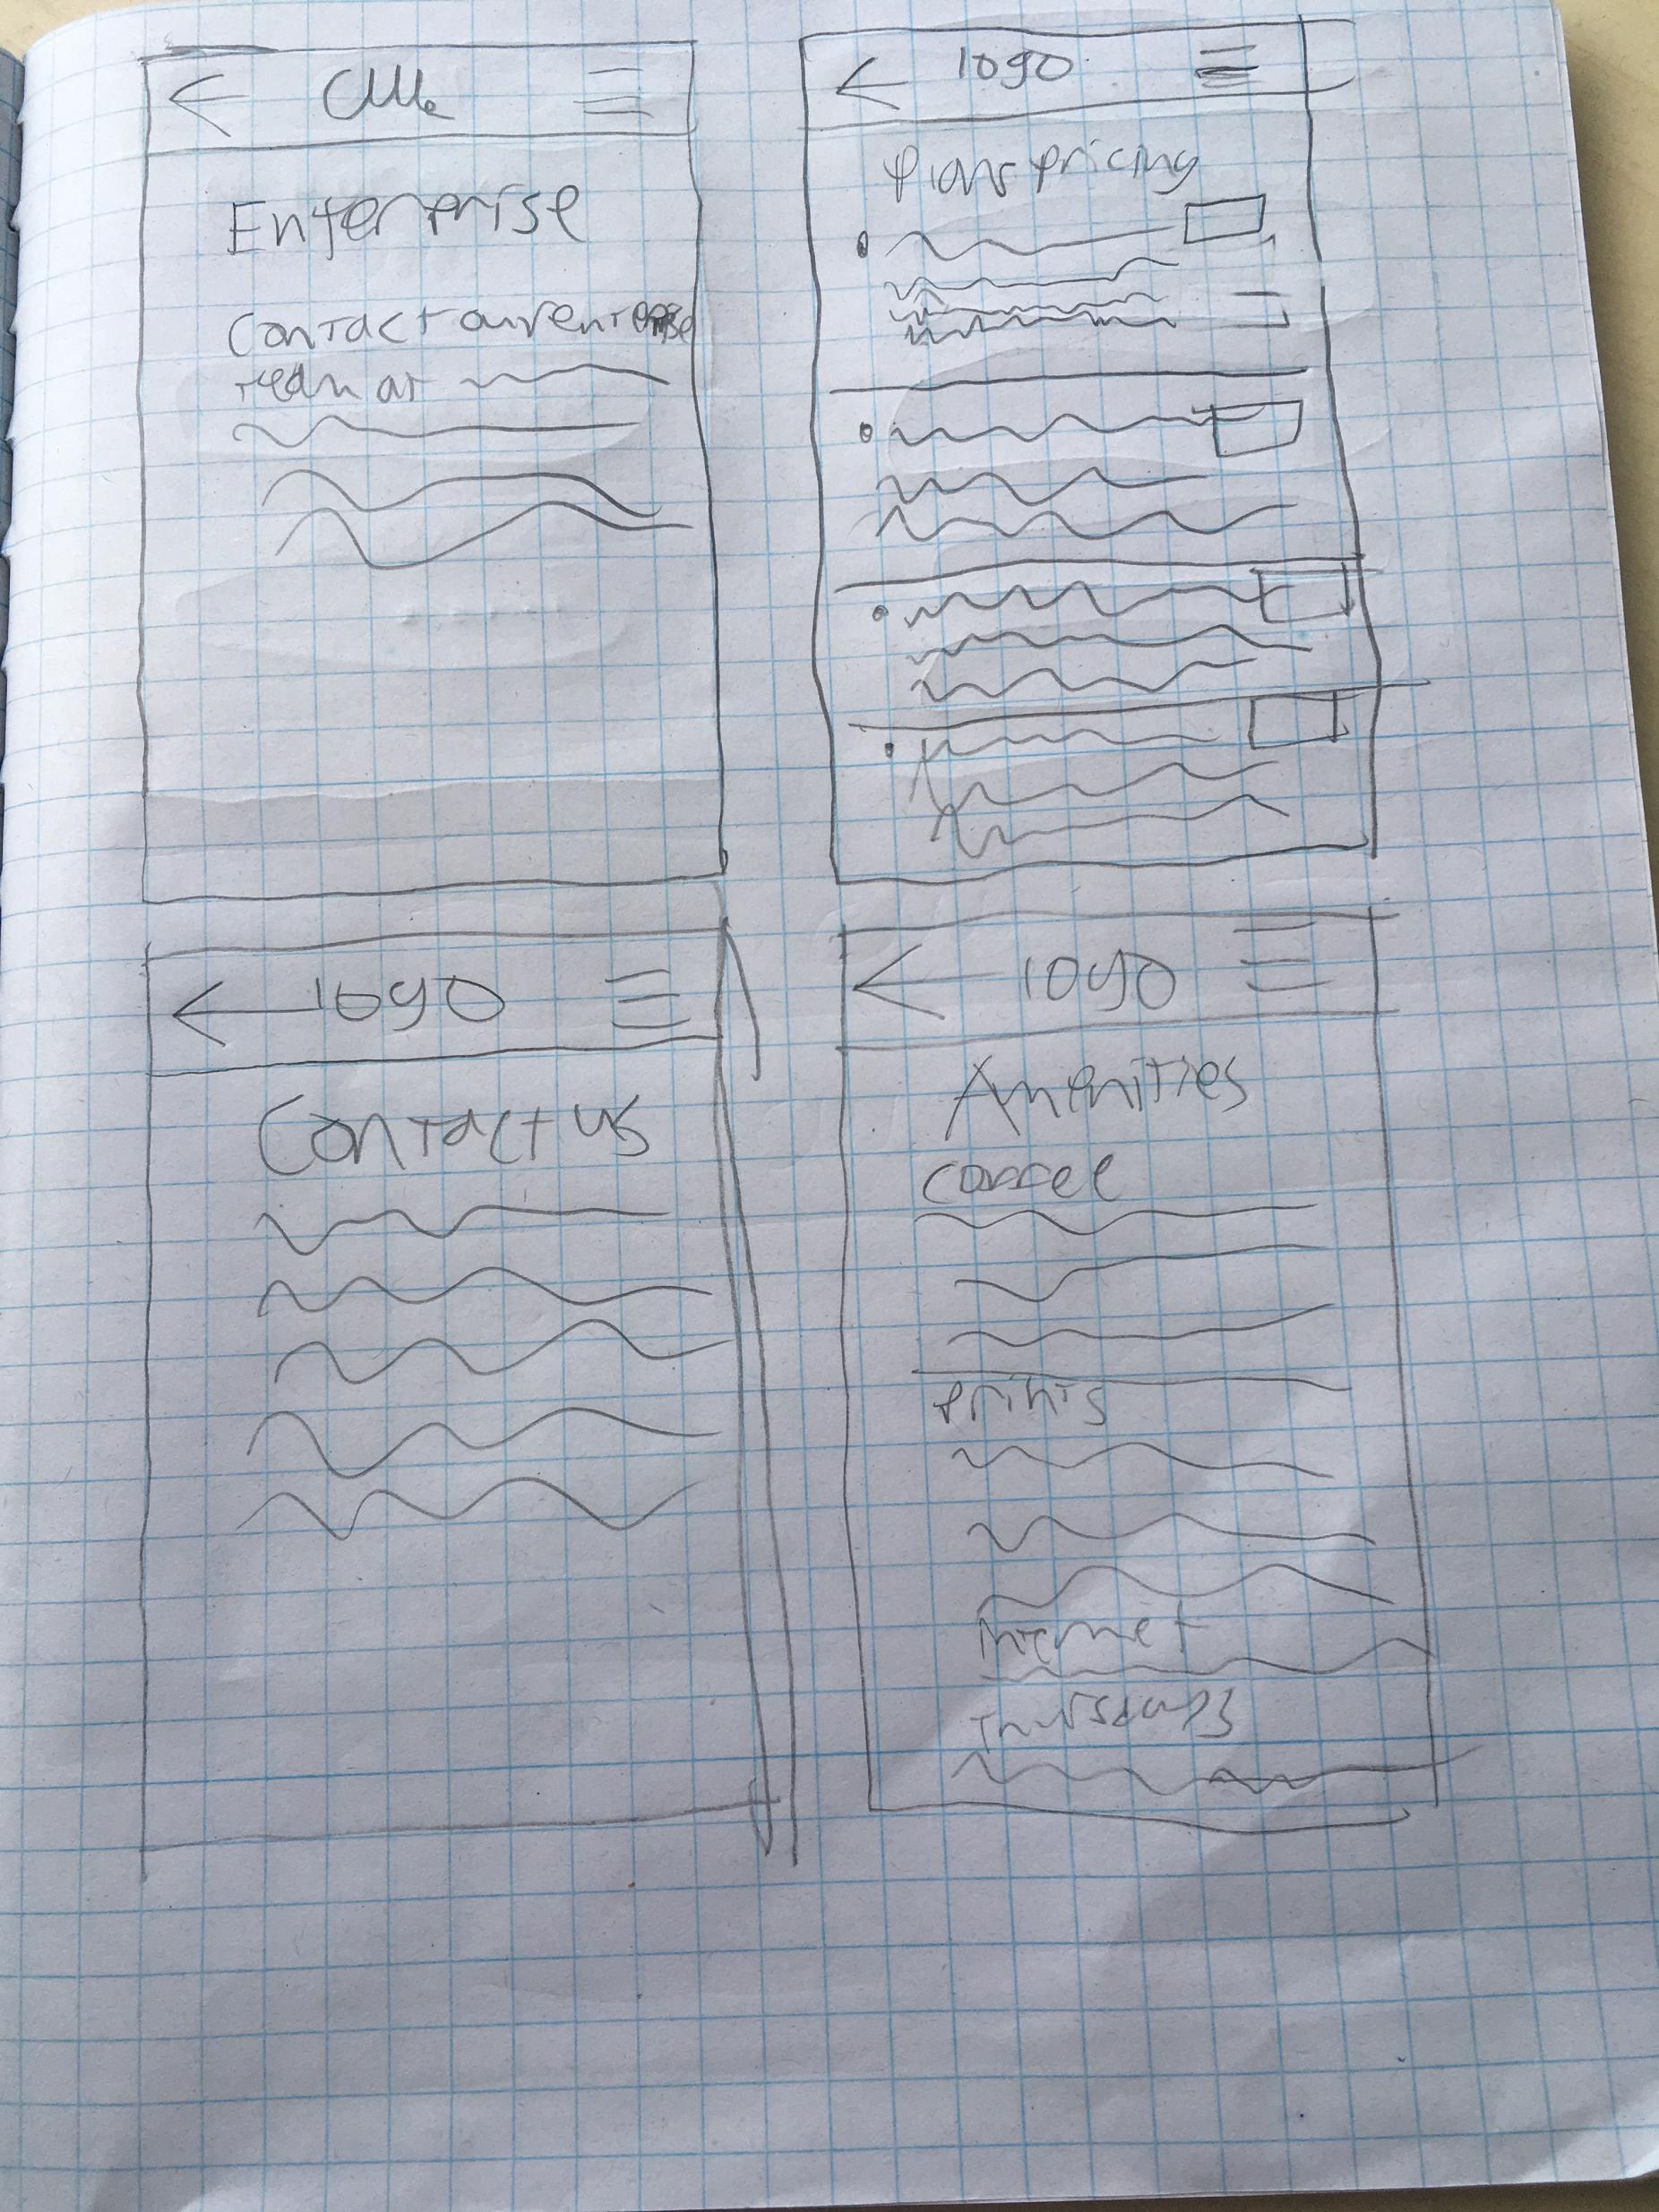 Enterprise
Contact our enterprise
team at
logo
Plans pricing
logo
Contact us
logo
Amenities
Coffee
Prints
Internet
Thursdays